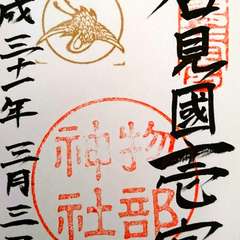 石見國壱宮
物部
神社
成三十一年 三月三日